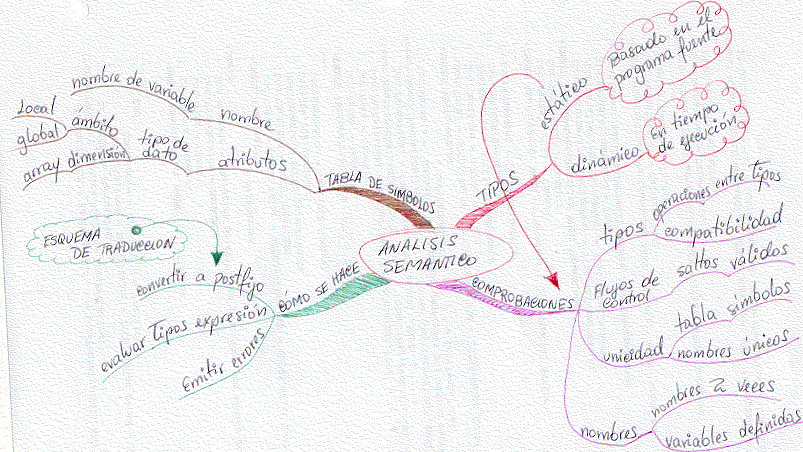 ANALISIS
SEMANTICO
TABLA DE SIMBOLOS
nombre
nombre de variable
atributos
tipo de
dato
ámbito
Local
global
dimensión
array
TIPOS
estático
Basado en el
programa fuente
dinámico
En tiempo
de ejecución
COMPROBACIONES
tipos
operaciones entre tipos
compatibilidad
Flujos de
control
saltos válidos
unicidad
tabla símbolos
nombres únicos
nombres
nombres 2 veces
variables definidas
CÓMO SE HACE
ESQUEMA
DE TRADUCCION
convertir a postfijo
evaluar Tipos expresión
Emitir errores